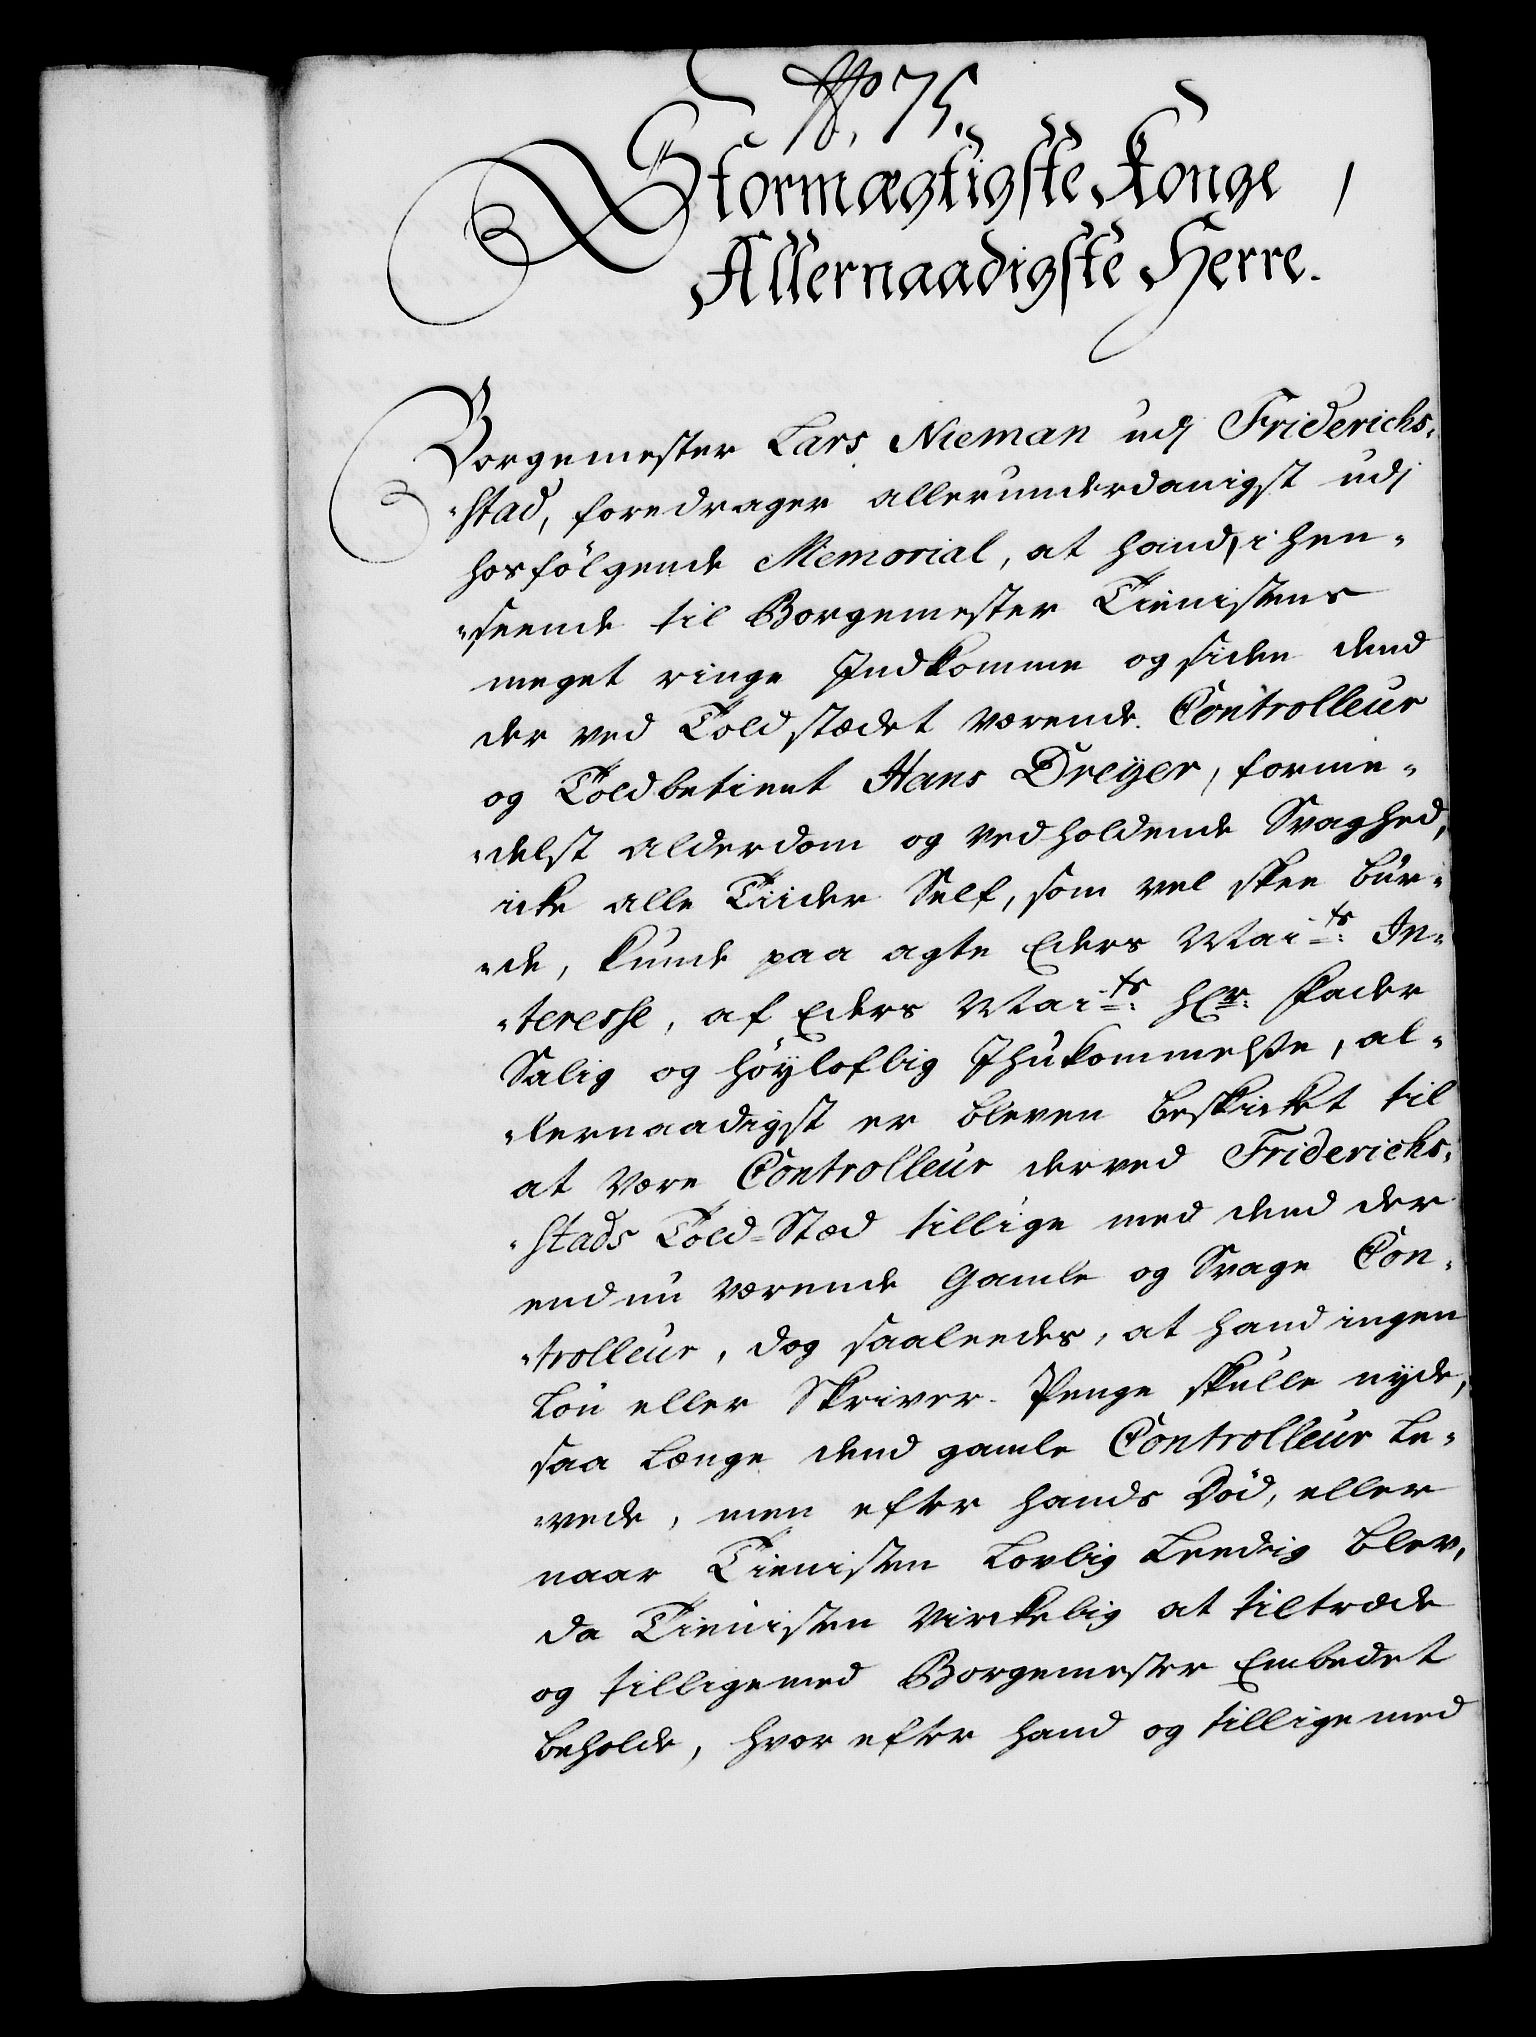 No. 75.
Stormægtigste Konge,
Allernaadigste Herre.
Borgemester Lars Nieman udj Friderichs-
-stad, foredrager allerunderdanigst udj
hosfölgende Memorial, at hand, i hen-
-seende til Borgemester Tienistens
meget ringe Indkomme og siden dend
der ved Toldstædet værende Controlleur
og Toldbetient Hans Dreÿer, forme-
-delst alderdom og vedholdende Svaghed,
icke alle Tiider Self, som vel skee bur-
-de, kunde paa agte Eders Maits: In-
-teresse, af Eders Maits: Hr: Fader
Salig og höÿloflig Ihukommelse, al-
-lernaadigst er bleven beskicket til
at være Controlleur derved Friderichs-
-stads Told-Stæd tillige med dend der
endnu værende Gamle og Svage Con-
-trolleur, dog saaleedes, at hand ingen
Lön eller Skriver-Penge skulle nyde,
saa Længe dend gamle Controlleur Le-
-vede, men efter hands Död, eller
naar Tienisten Lovlig Leedig blev,
da Tienisten Virckelig at tiltræde
og tilligemed Borgemester Embedet
beholde, hvor efter hand og tilligemed